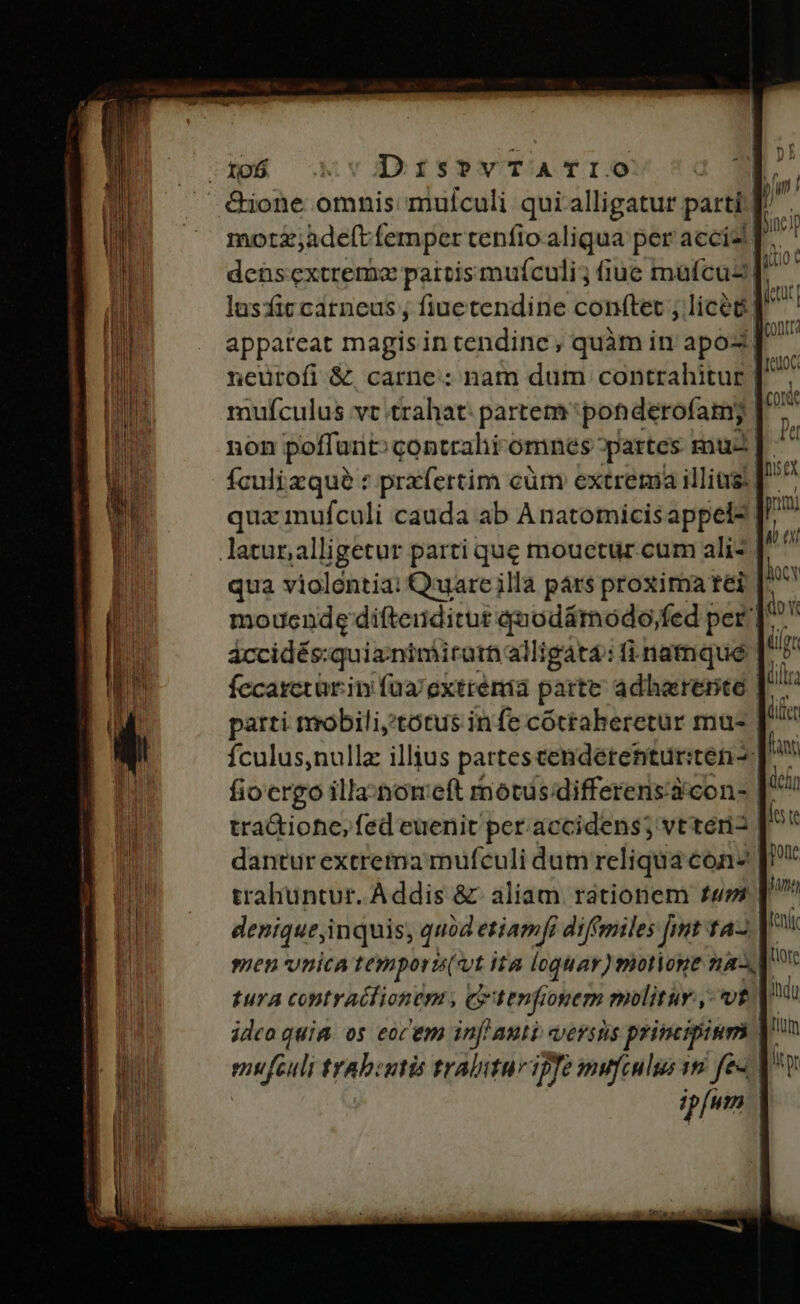 106 DISPVTATIO
ctione omnis muſculi qui alligatur parti
motæ, adeſt ſemper tenſio aliqua per acci-
dens extremæ partis muſculi; ſiue muſcu-
lus ſit carneus, ſiue tendine conſtet, licèt
appareat magis in tendine, quàm in apo-
neuroſi & carne: nam dum contrahitur
muſculus vt trahat partem ponderoſam,
non poſſunt contrahi omnes partes mu-
ſculi æquè: præſertim cùm extrema illius
quæ muſculi cauda ab Anatomicis appel-
latur, alligetur parti quę mouetur cum ali-
qua violentia: Quare illa pars proxima rei
mouendę diſtenditur quodāmodo, ſed per
accidēs: quia nimirum alligata: ſi namque
ſecaretur in ſua extrema parte adhærente
parti mobili, totus in ſe cōtraheretur mu-
ſculus, nullæ illius partes tenderentur: ten-
ſio ergo illa non eſt motus differens à con-
tractione, ſed euenit per accidens, vt ten-
dantur extrema muſculi dum reliqua con-
trahuntur. Addis & aliam rationem tum
denique, inquis, quòd etiamſi diſſimiles ſint ta-
men vnica temporis (vt ita loquar) motione na-
tura contractionem, & tenſionem molitur, vt
ideo quia os eodem inſtanti versùs principium
muſculi trahentis trahitur ipſe muſculus in ſe-
ipſum